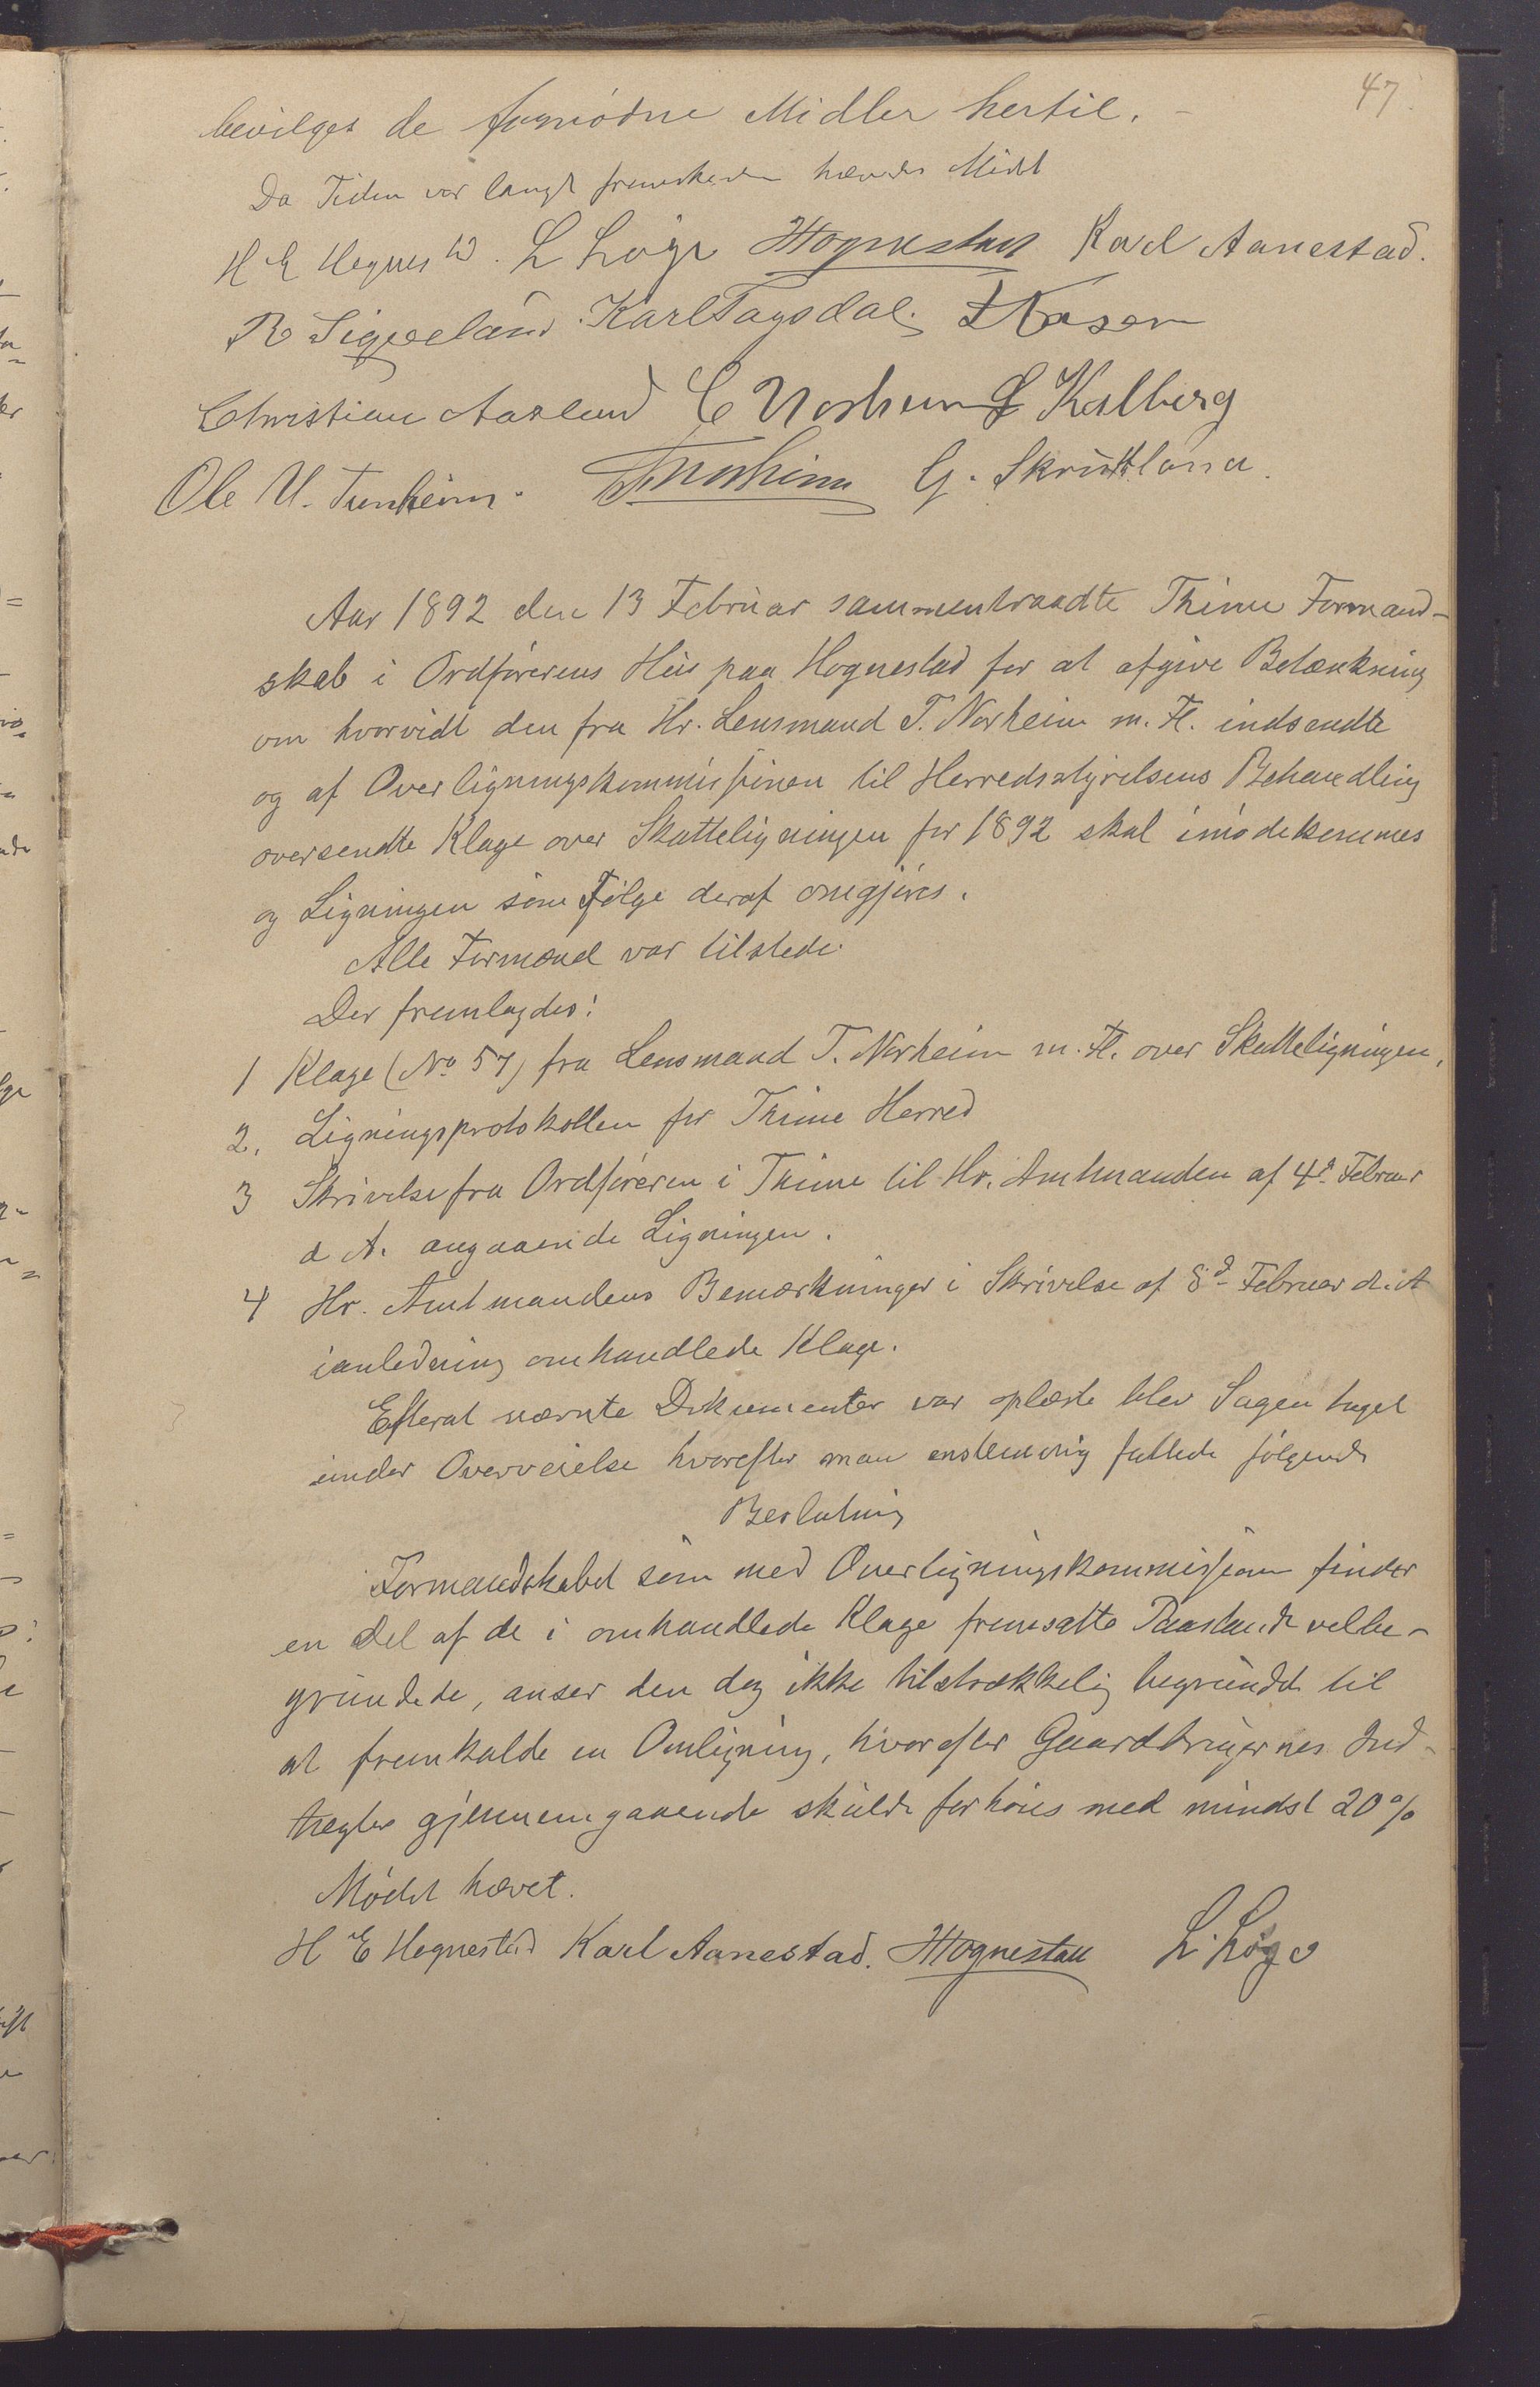 47.
bevilges de fornødne Midler hertil. -
Da Tiden var langt fremskreden hævdes Mødet
H E Hognestd. L Løge Hognestad Karl Aanestad.
R Sigveland Karl Taxsdal.
Christian Aasland C Norheim L Kalberg
Ole U. Tunheim. T Norheim G. Skrudland.
Aar 1892 den 13 Februar sammentraadte Thime Formand-
skab i Ordførerens Hus paa Hognestad for at afgive Betænkning
om hvorvidt den fra Hr. Lensmand T. Norheim m. Fl. indsendte
og af Overligningskommissionen til Herredsstyrelsens Behandling
oversendte Klage over Skatteligningen for 1892 skal imødekommes
og Ligningen som Følge deraf omgjøres.
Alle Formænd var tilstede.
Der fremlagdes:
1 Klage (No 57) fra Lensmand T. Norheim m. Fl. over Skatteligningen,
2. Ligningsprotokollen for Thime Herred
3 Skrivelse fra Ordføreren i Thime til Hr. Amtmanden af 4d. Februar
d A. angaaende Ligningen.
4 Hr. Amtmandens Bemærkninger i Skrivelse af 8d Februar d. A
ianledning omhandlede Klage.
Efterat nævnte Dokumenter var oplæste blev Sagen taget
under Overveielse hvorefter man enstemmig fattede følgende
Beslutning
Formandskabet som med Overligningskommissionen finder
en del af de i omhandlede Klage fremsatte Paastande velbe-
grundede, anser den dog ikke tilstrækkelig begrundet til
at fremkalde en Omligning, hvorefter Gaardbrugernes Ind-
tægter gjennemgaaende skulde forhøies med mindst 20 %
Mødet hævet.
H E Hognestad Karl Aanestad. Hognestad L. Løge